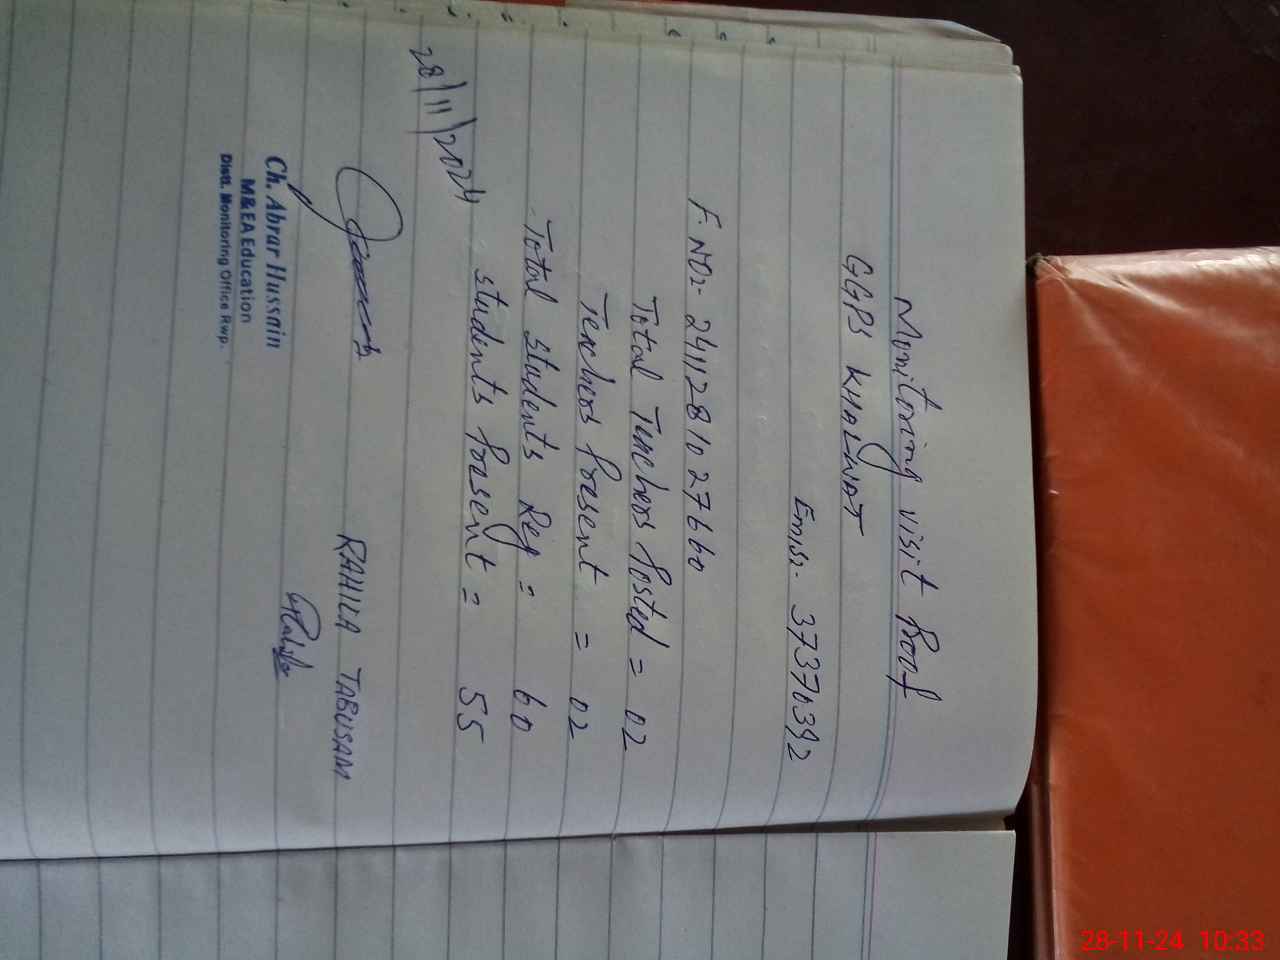 Monitoring visit Proof
GGPS KHALWAT
Emis:- 37370392
F. NO:- 2411281027660
Total Teachers Posted = 02
Teachers Present = 02
Total students Reg = 60
students Present = 55
28/11/2024
RAHILA TABUSAM
Ch. Abrar Hussain
M&EA Education
Distt. Monitoring Office Rwp.
28-11-24 10:33